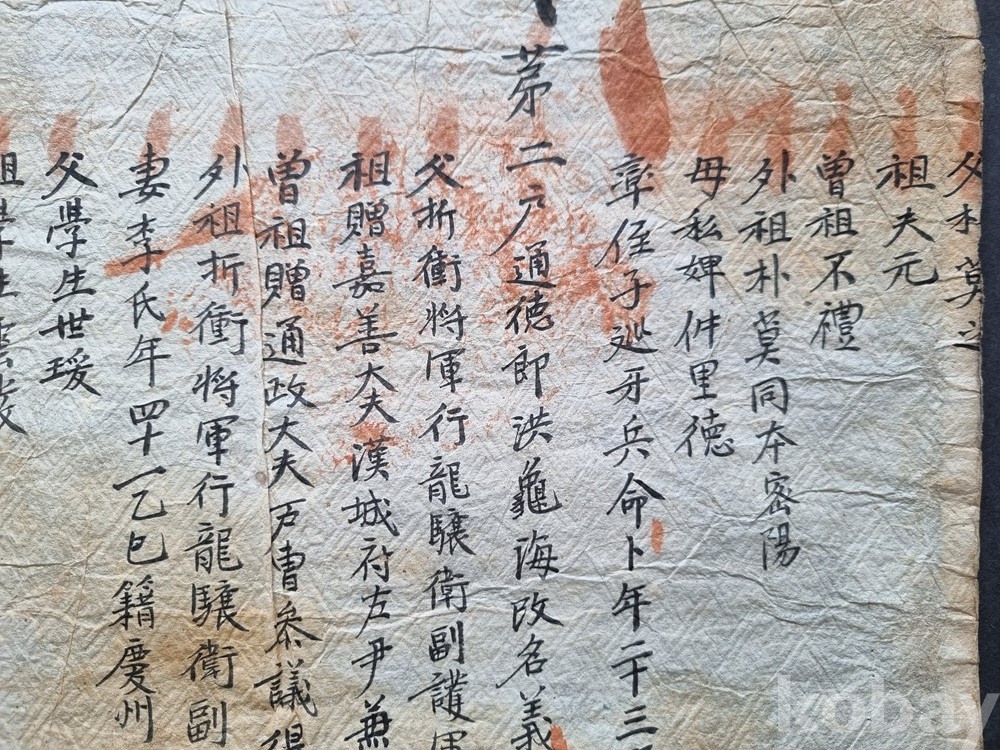 父朴莫
祖夫元
曾祖不禮
外祖朴莫同本密陽
母私婢件里德
率侄子巡牙兵命卜年二十三
第二戶通德郎洪龜海改名義
父折衝將軍行龍驤衛副護軍
祖贈嘉善大夫漢城府左尹兼
曾祖贈通政大夫戶曹叅議
外祖折衝將軍行龍驤衛副
妻李氏年四十一乙巳籍慶州
父學生世瑗
祖學生
kobay